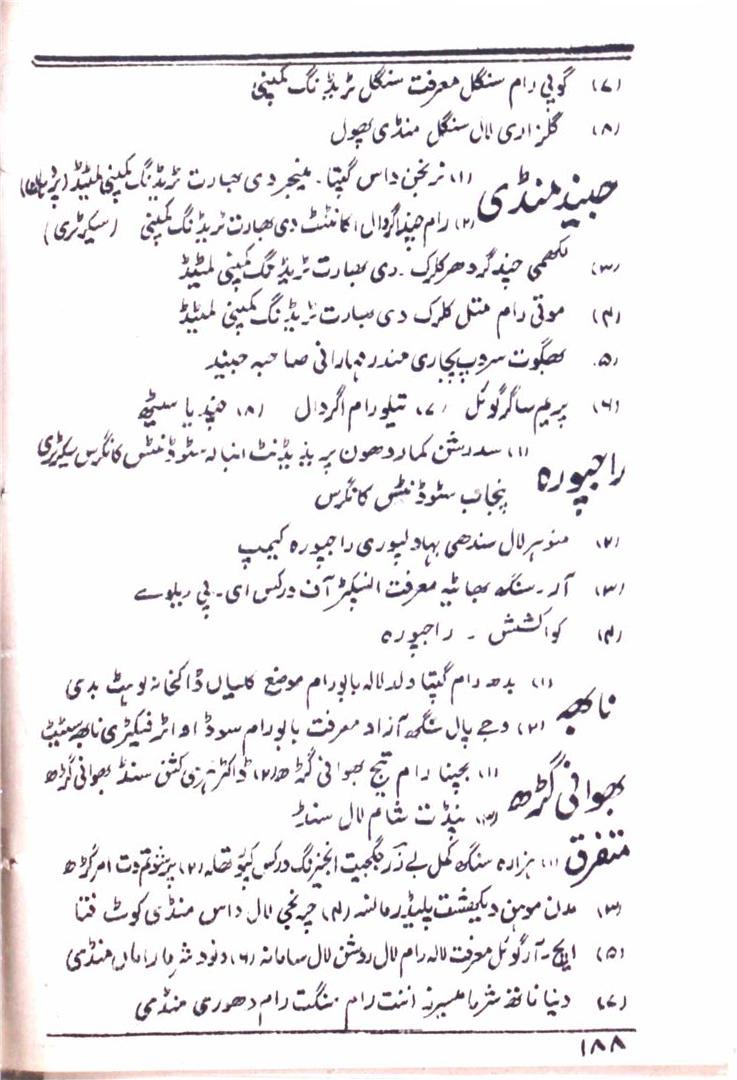 (۷) گوپی رام سنگل معرفت سنگل ٹریڈنگ کمپنی
(۸) گلزاری لال سنگل منڈی پھول
جیند منڈی (۱) نرنجن داس گپتا۔ مینجر دی بھارت ٹریڈنگ کمپنی لمیٹیڈ (پردھان)
(۲) رام چندر اگروال اکانٹنٹ دی بھارت ٹریڈنگ کمپنی (سیکرٹری)
(۳) لکھمی چند گردھر کلرک۔ دی بھارت ٹریڈنگ کمپنی لمٹیڈ
(۴) موتی رام متل کلرک دی بھارت ٹریڈنگ کمپنی لمٹیڈ
(۵) بھگوت سروپ پجاری مندر مہارانی صاحبہ جیند
(۶) پریم ساگر گوئل (۷) تیلو رام اگروال (۸) سیٹھ
راجپورہ (۱) سدرشن کمار دھون پریذیڈنٹ انبالہ سٹوڈنٹس کانگرس سیکرٹری
پنجاب سٹوڈنٹس کانگرس
(۲) منوہر لال سندھی بہاولپوری راجپورہ کیمپ
(۳) آر۔ سنگھ بھاٹیہ معرفت آف ورکس ای۔ پی ریلوے
(۴) راجپورہ
نابھہ (۱) بدھ رام گپتا ولد لالہ بابو رام موضع کلیاں ڈاکخانہ بدی
(۲) وجے پال سنگھ آزاد معرفت بابو رام سوڈا واٹر فیکٹری نابھہ سٹیٹ
بھوانی گڑھ (۱) بچنا رام تیج بھوانی گڑھ (۲) ڈاکٹر ہری کشن سنڈ بھوانی گڑھ
(۳) پنڈت شام لال
متفرق (۱) ہزارہ سنگھ جگجیت انجنیرنگ ورکس کپورتھلہ (۲) پرشوتم دت امر گڑھ
(۳) مدن موہن پلیڈر (۴) چرنجی لال داس منڈی کوٹ فتا
(۵) ایچ۔ آر گوئل معرفت لالہ رام لال روشن لال سامانہ (۶) ونود شرما منڈی
(۷) دینا ناتھ شرما اننت رام سنگت رام دھوری منڈی
۱۸۸